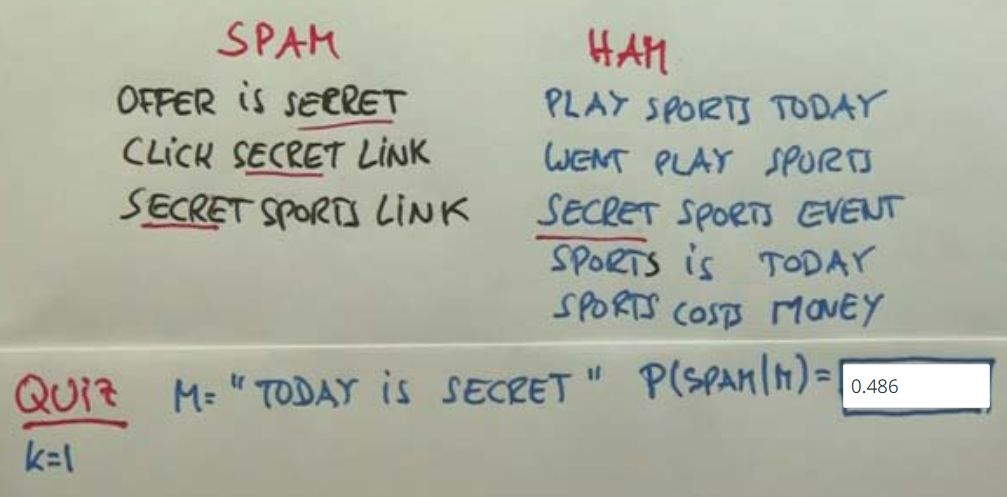 SPAM
OFFER iS SECRET
CLiCK SECRET LiNK
SECRET SPORTS LiNK
HAM
PLAY SPORTS TODAY
WENT PLAY SPORTS
SECRET SPORTS EVENT
SPORTS iS TODAY
SPORTS COSTS MONEY
QUiZ M= "TODAY iS SECRET" P(SPAM|M)= 0.486
k=1